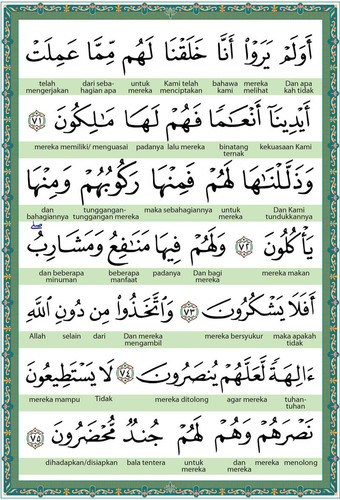 أَوَلَمْ يَرَوْا۟ أَنَّا خَلَقْنَا لَهُم مِّمَّا عَمِلَتْ
telah mengerjakan dari seba-hagian apa untuk mereka Kami telah menciptakan bahawa kami mereka melihat Dan apa kah tidak
أَيْدِينَآ أَنْعَـٰمًا فَهُمْ لَهَا مَـٰلِكُونَ ٧١
mereka memiliki/ menguasai padanya lalu mereka binatang ternak kekuasaan Kami
وَذَلَّلْنَـٰهَا لَهُمْ فَمِنْهَا رَكُوبُهُمْ وَمِنْهَا
dan bahagiannya tunggangan-tunggangan mereka maka sebahagiannya untuk mereka Dan Kami tundukkannya
يَأْكُلُونَ ٧٢ وَلَهُمْ فِيهَا مَنَـٰفِعُ وَمَشَارِبُ ۖ
dan beberapa minuman beberapa manfaat padanya Dan bagi mereka mereka makan
أَفَلَا يَشْكُرُونَ ٧٣ وَٱتَّخَذُوا۟ مِن دُونِ ٱللَّهِ
Allah selain dari Dan mereka mengambil mereka bersyukur maka apakah tidak
ءَالِهَةً لَّعَلَّهُمْ يُنصَرُونَ ٧٤ لَا يَسْتَطِيعُونَ
mereka mampu Tidak mereka ditolong agar mereka tuhan-tuhan
نَصْرَهُمْ وَهُمْ لَهُمْ جُندٌ مُّحْضَرُونَ ٧٥
dihadapkan/disiapkan bala tentera untuk mereka dan mereka mereka menolong